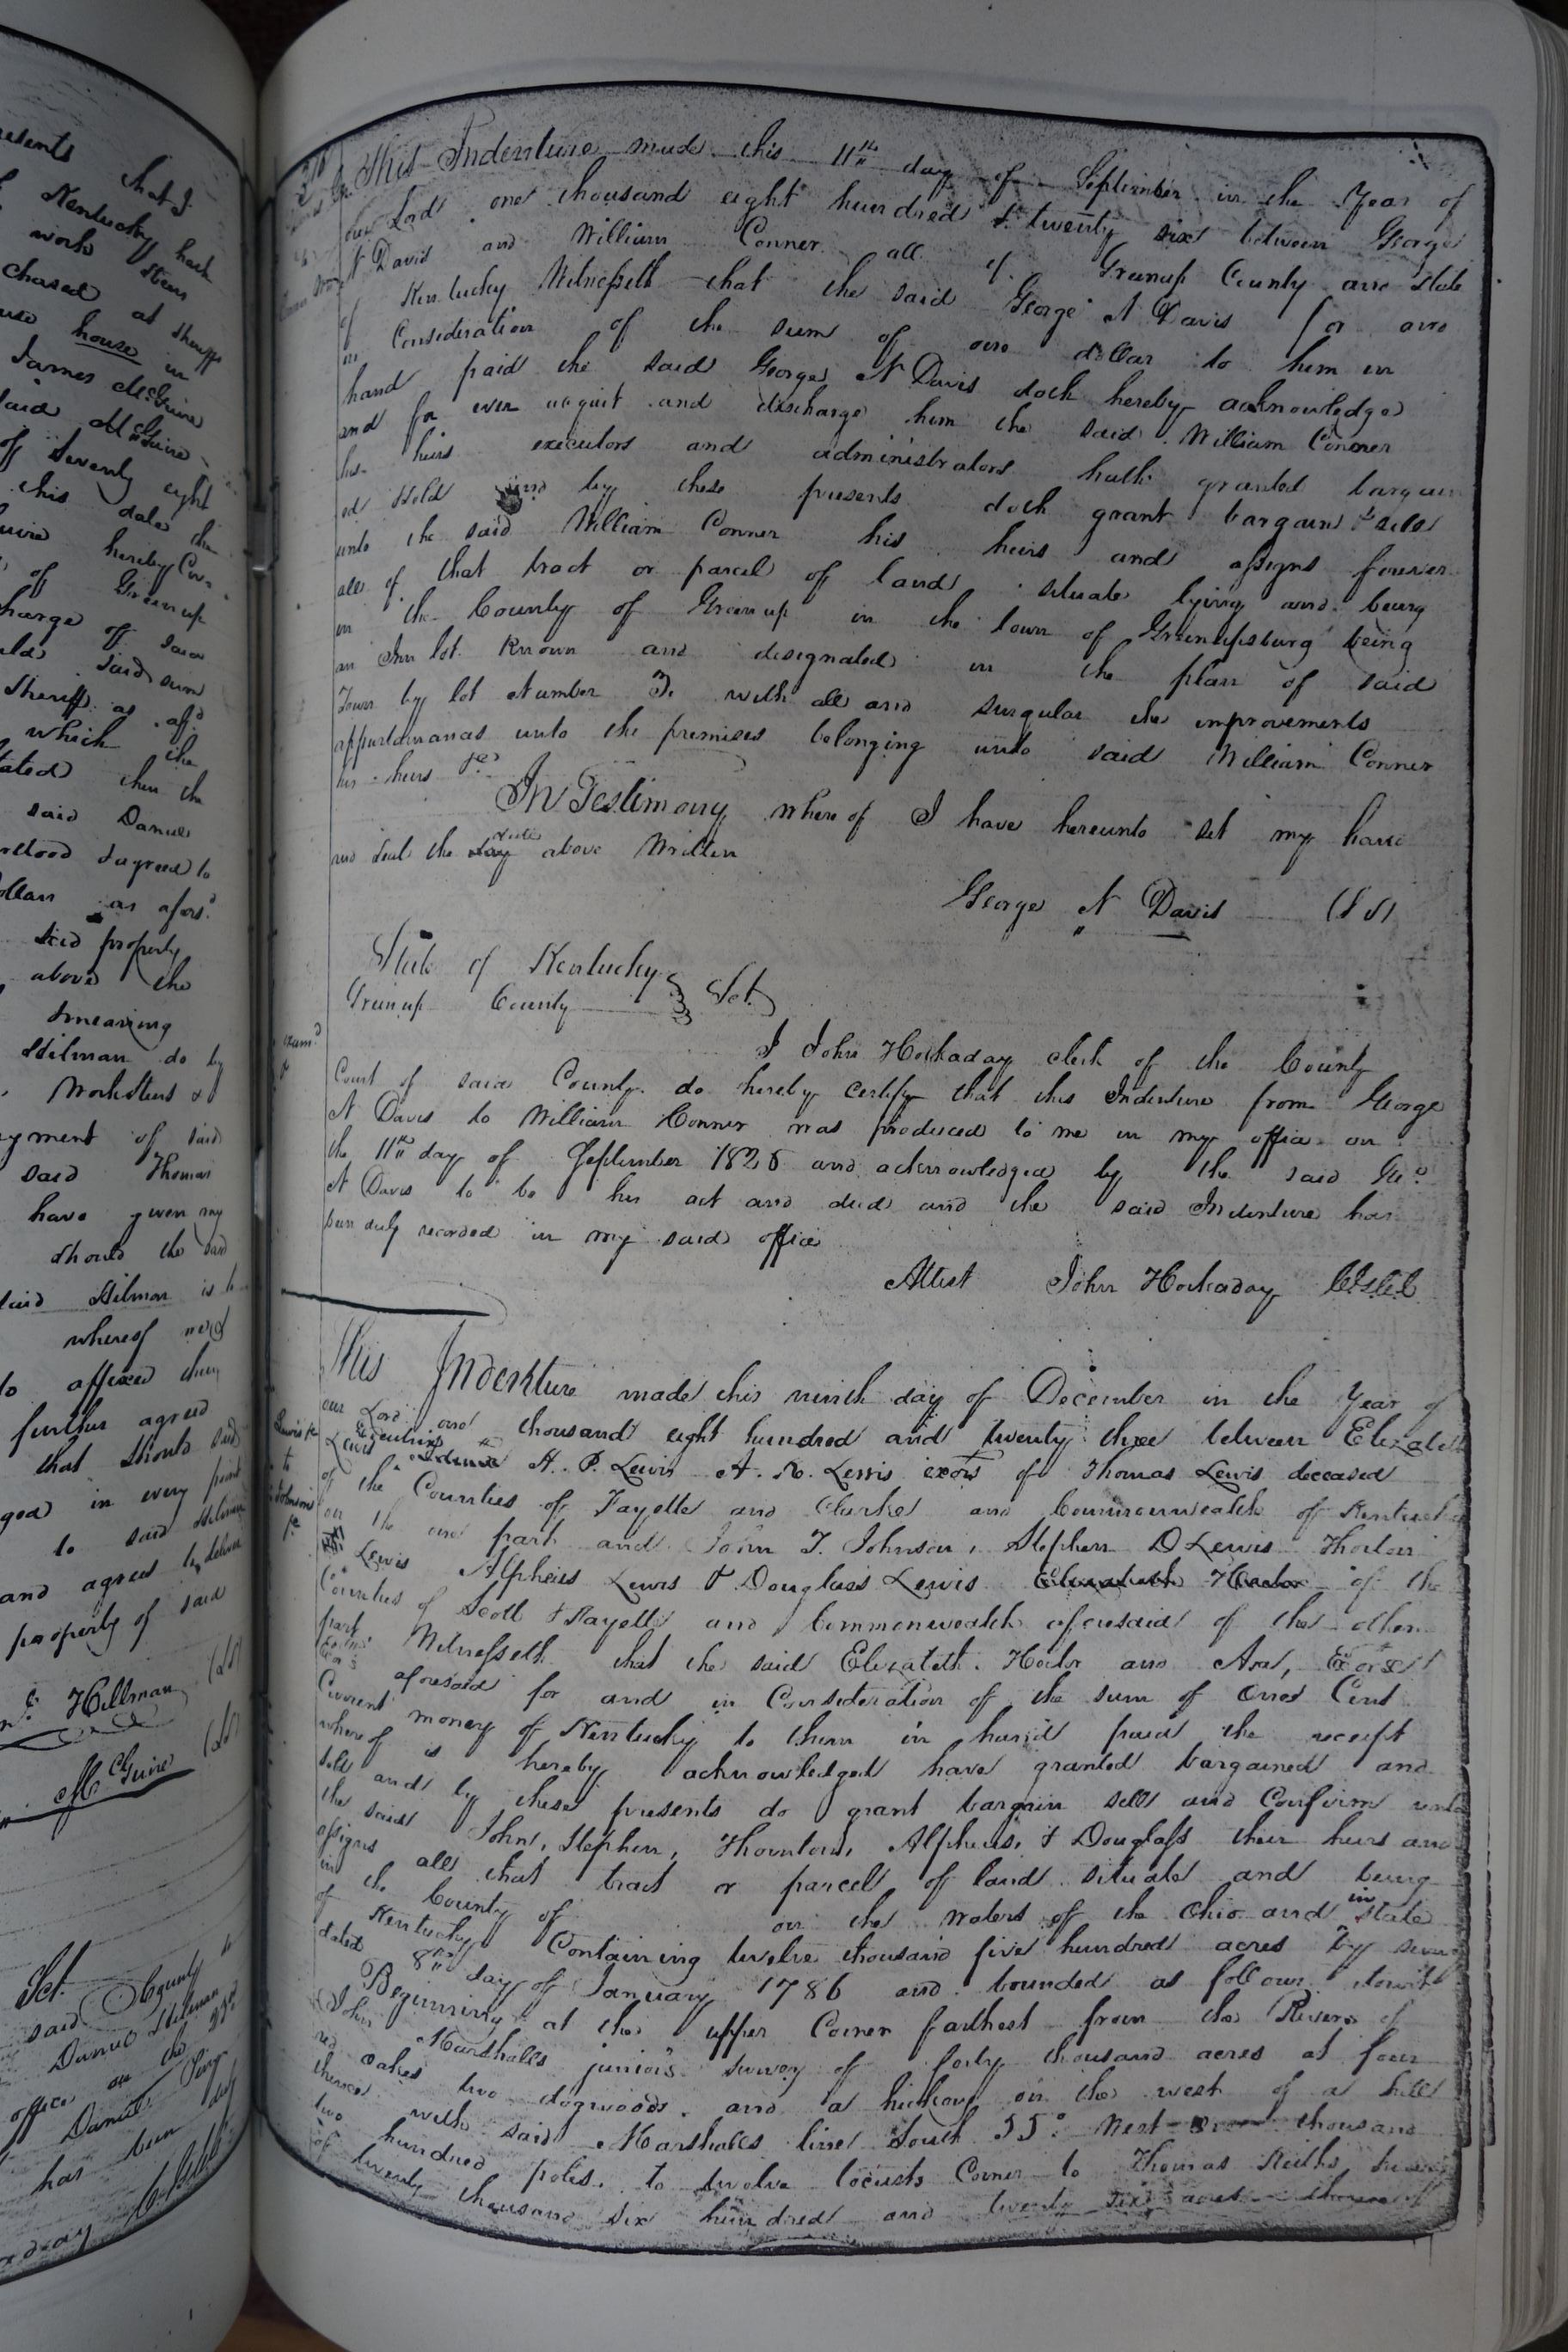 resents that I
Kentucky hath
work stear
chased at sheriffs
house in
James McGuire
said McGuire
of seventy eight
this date the
hereby Cov=
of Greenup
charge of said
said sum
Sheriff as aff.d
which the
stated then the
said Daniel
agreed to
Dollars as afors.d
said property
above the
meaning
Hilman do by
Workstens &
payment of said
said Thomas
have given my
should the said
said Hilman is
whereof we
to affixed their
further agreed
that should said
in every point
to said Hilman
and agrees to deliver
property of said
Hillman (LS)
McGuire (LS)
Sct.
said County
Daniel Hilman
office on the
Daniel
has been duly
This Indenture made this 11th day of September in the Year of
our Lord one thousand eight hundred & twenty six between George
N Davis and William Conner all of Greenup County and State
of Kentucky Witnesseth that the said George N Davis for and
in Consideration of the sum of one dollar to him in
hand paid the said George N Davis doth hereby acknowledge
and for ever acquit and discharge him the said William Conner
his heirs executors and administrators hath granted bargain
ed Sold and by these presents doth grant bargain & sell
unto the said William Conner his heirs and assigns forever
all of that tract or parcel of land situate lying and being
in the County of Greenup in the town of Greenupsburg being
an Inn lot Known and designated in the plan of said
Town by lot Number with all and singular the improvements
appurtainances unto the premises belonging unto said William Conner
his heirs &c
In Testimony where of I have hereunto set my hand
and Seal the day date above Written
George N Davis (LS)
State of Kentucky
Greenup County Sct.
I John Hockaday clerk of the County
Exam.d
Court of said County do hereby certify that this Indenture from George
N Davis to William Conner was produced to me in my office on
the 11th day of September 1826 and acknowledged by the said Geo
N Davis to be his act and deed and the said Indenture has
been duly recorded in my said office
Attest John Hockaday
This Indenkture made this ninth day of December in the Year of
our Lord one thousand eight hundred and twenty three between Elizabeth
Lewis Executrix H. P. Lewis A. K. Lewis exors of Thomas Lewis deceased
of the Counties of Fayette and Clarke and Commonwealth of Kentucky
Lewis &c
to
Johnson
&c
on the one part and John T. Johnson, Stephen D Lewis Thorton
Lewis Alpheus Lewis & Douglass Lewis Elizabeth Hector of the
Counties of Scott & Fayette and Commonwealth aforesaid of the other
part Witnesseth that the said Elizabeth, Hector and Asa, Exors
aforesaid for and in Consideration of the sum of One Cent
Current money of Kentucky to them in hand paid the receipt
where of is hereby acknowledged have granted bargained and
sold and by these presents do grant bargain sell and Confirm unto
the said John, Stephen, Thornton, Alpheus, & Douglass their heirs and
assigns all that tract or parcel of land situate and being
in the County of on the waters of the Ohio and in State
of Kentucky Containing twelve thousand five hundred acres by survey
dated 8th day of January 1786 and bounded as follows towit
Beginning at the upper Corner farthest from the River of
John Marshalls junior's survey of forty thousand acres at four
red oakes two dogwoods and a hickory on the west of a hill
thence with said Marshalls line South 55° West thousand
two hundred poles to twelve locusts Corner to Thomas Keiths survey
of twenty thousand six hundred and twenty six acres thence